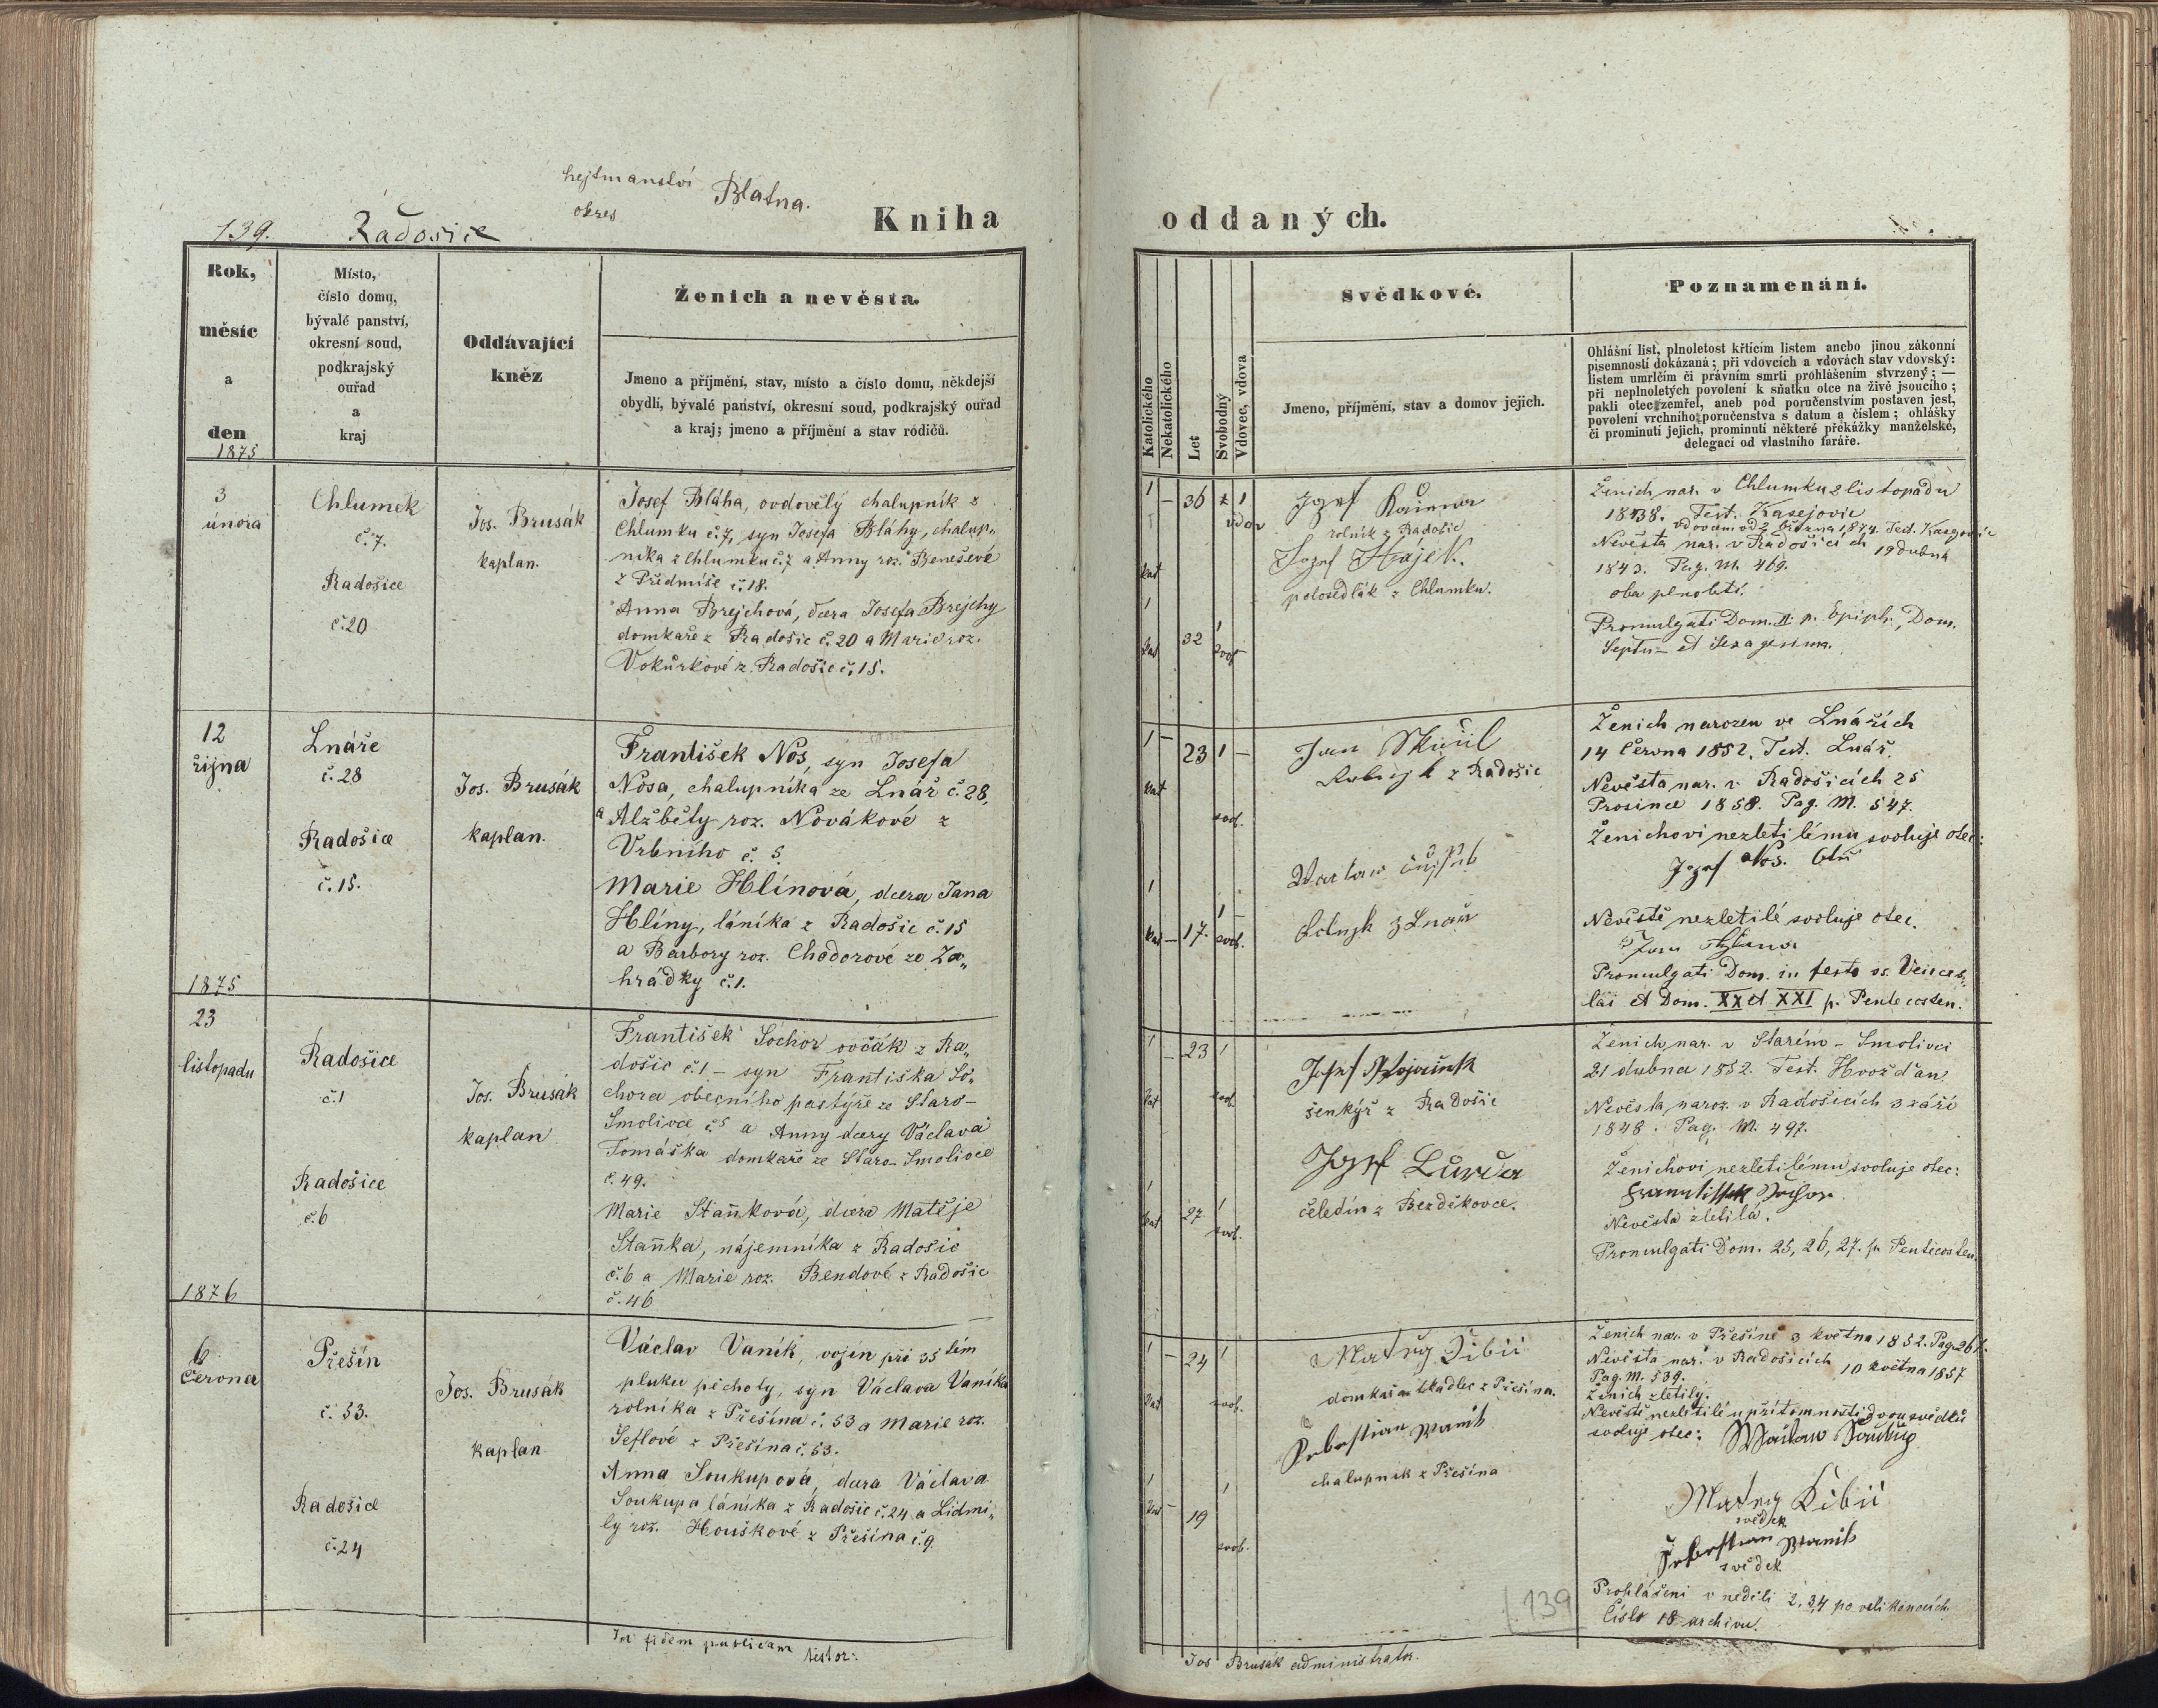 139.
Radošice
hejtmanství
okres
Blatna.
Kniha
Rok,
měsíc
a
den
1875
Místo,
číslo domu,
bývalé panství,
okresní soud,
podkrajský
ouřad
a
kraj
Oddávající
kněz
Ženich a nevěsta.
Jmeno a příjmění, stav, místo a číslo domu, někdejší
obydlí, bývalé panství, okresní soud, podkrajský ouřad
a kraj; jmeno a příjmění a stav rodičů.
3
února
Chlumek
č. 7.
Radošice
č. 20
Jos. Brusák
kaplan.
Josef Bláha, ovdovělý chalupník z
Chlumku č. 7, syn Josefa Bláhy, chalup„
níka z Chlumku č. 7 a Anny roz. Benešové
z Předmíře č. 18.
Anna Brejchová, dcera Josefa Brejchy
domkaře z Radošic č. 20 a Marie roz.
Vokurkové z Radošic č. 15.
12
října
Lnáře
č. 28
Radošice
č. 15.
Jos. Brusák
kaplan.
František Nos, syn Josefa
Nosa, chalupníka ze Lnář č. 28,
a Alžběty roz. Novákové z
Vrbního č. 5.
Marie Hlínová, dcera Jana
Hlíny, láníka z Radošic č. 15
a Barbory roz. Chodorové ze Za„
hrádky č. 1.
1875
23
listopadu
Radošice
č. 1
Radošice
č. 6
Jos. Brusák
kaplan
František Sochor ovčák z Ra„
došic č. 1 – syn Františka So„
chora obecního pastýře ze Staro–
Smolivce č. 5 a Anny dcery Václava
Tomáška domkaře ze Staro–Smolivce
č. 49.
Marie Staňková, dcera Matěje
Staňka, nájemníka z Radošic
č. 6 a Marie roz. Bendové z Radošic
č. 46
1876
6
Června
Přešín
č. 53.
Radošice
č. 24
Jos. Brusák
kaplan
Václav Vaník, vojín při 35 tém
pluku pěchoty, syn Václava Vaníka
rolníka z Přešína č. 53 a Marie roz.
Šeflové z Přešína č. 53.
Anna Soukupová, dcera Václava
Soukupa láníka z Radošic č. 24 a Lidmi„
ly roz. Houškové z Přešína č. 9.
In fidem publicam testor:
oddaných.
Katolického
Nekatolického
Let
Svobodný
Vdovec, vdova
Svědkové.
Jmeno, příjmění, stav a domov jejich.
Poznamenání.
Ohlášní list, plnoletost křticím listem anebo jinou zákonní
písemností dokázaná; při vdovcích a vdovách stav vdovský:
listem umrlčím či právním smrti prohlášením stvrzený; —
při neplnoletých povolení k sňatku otce na živě jsoucího;
pakli otec zemřel, aneb pod poručenstvím postaven jest,
povolení vrchního poručenstva s datum a číslem; ohlášky
či prominutí jejich, prominutí některé překážky manželské,
delegací od vlastního faráře.
1 – 36 1
vdov
kat
1
kat
32
1
svob
Jozef
rolník z Radošic
Jozef Hájek.
polosedlák z Chlumku.
Ženich nar. v Chlumku 2 listopadu
1838. Test. Kasejovic
vdovcem od 2. března 1874. Test. Kasejovic
Nevěsta nar. v Radošicích 19 dubna
1843. Pag. M. 469.
oba plnoletí.
Promulgati Dom. II. p. Epiph., Dom.
Septu– et Sexagesima.
1 – 23 1 –
kat
svob.
1
kat – 17. svob.
Jan
z Radošic
z Lnář
Ženich narozen ve Lnářích
14 Června 1852. Test. Lnář.
Nevěsta nar. v Radošicích 25
Prosince 1858. Pag. M. 547.
Ženichovi nezletilému svoluje otec:
Jozef Nos.
Nevěstě nezletilé svoluje otec.
Jan Hlina
Promulgati Dom. in festo ss. Vences„
lai et Dom. XX et XXI p. Pentecosten.
1 – 23 1
kat
svob.
1
kat
27
1
svob.
Josef
šenkýř z Radošic
Jozef
čeledín z Bezděkovce.
Ženich nar. v Starém–Smolivci
21 dubna 1852. Test. Hvožďan.
Nevěsta naroz. v Radošicích 3 září
1848. Pag. M. 497.
Ženichovi nezletilému svoluje otec:
Frantissek Sochor
Nevěsta zletilá.
Promulgati Dom. 25, 26, 27. p. Penticosten.
1 – 24 1
kat
svob.
1
kat –
19
1
svob.
Matey Cibii
domkař a tkadlec z Přešína.
Šebestian Wanik
chalupník z Přešína
Ženich nar. v Přešíně 3 května 1852. Pag. 261.
Nevěsta nar. v Radošicích 10 května 1857
Pag. M. 539.
Ženich zletilý.
Nevěstě nezletilé u přítomnosti dvou svědků
svoluje otec: Waclaw Saukup
Matey Cibii
svědek
Šebestian Wanik
svědek
Prohlášeni v neděli 2. 3. 4 po velikonocích.
Číslo 18 archivu.
139
Jos Brusák administrator.